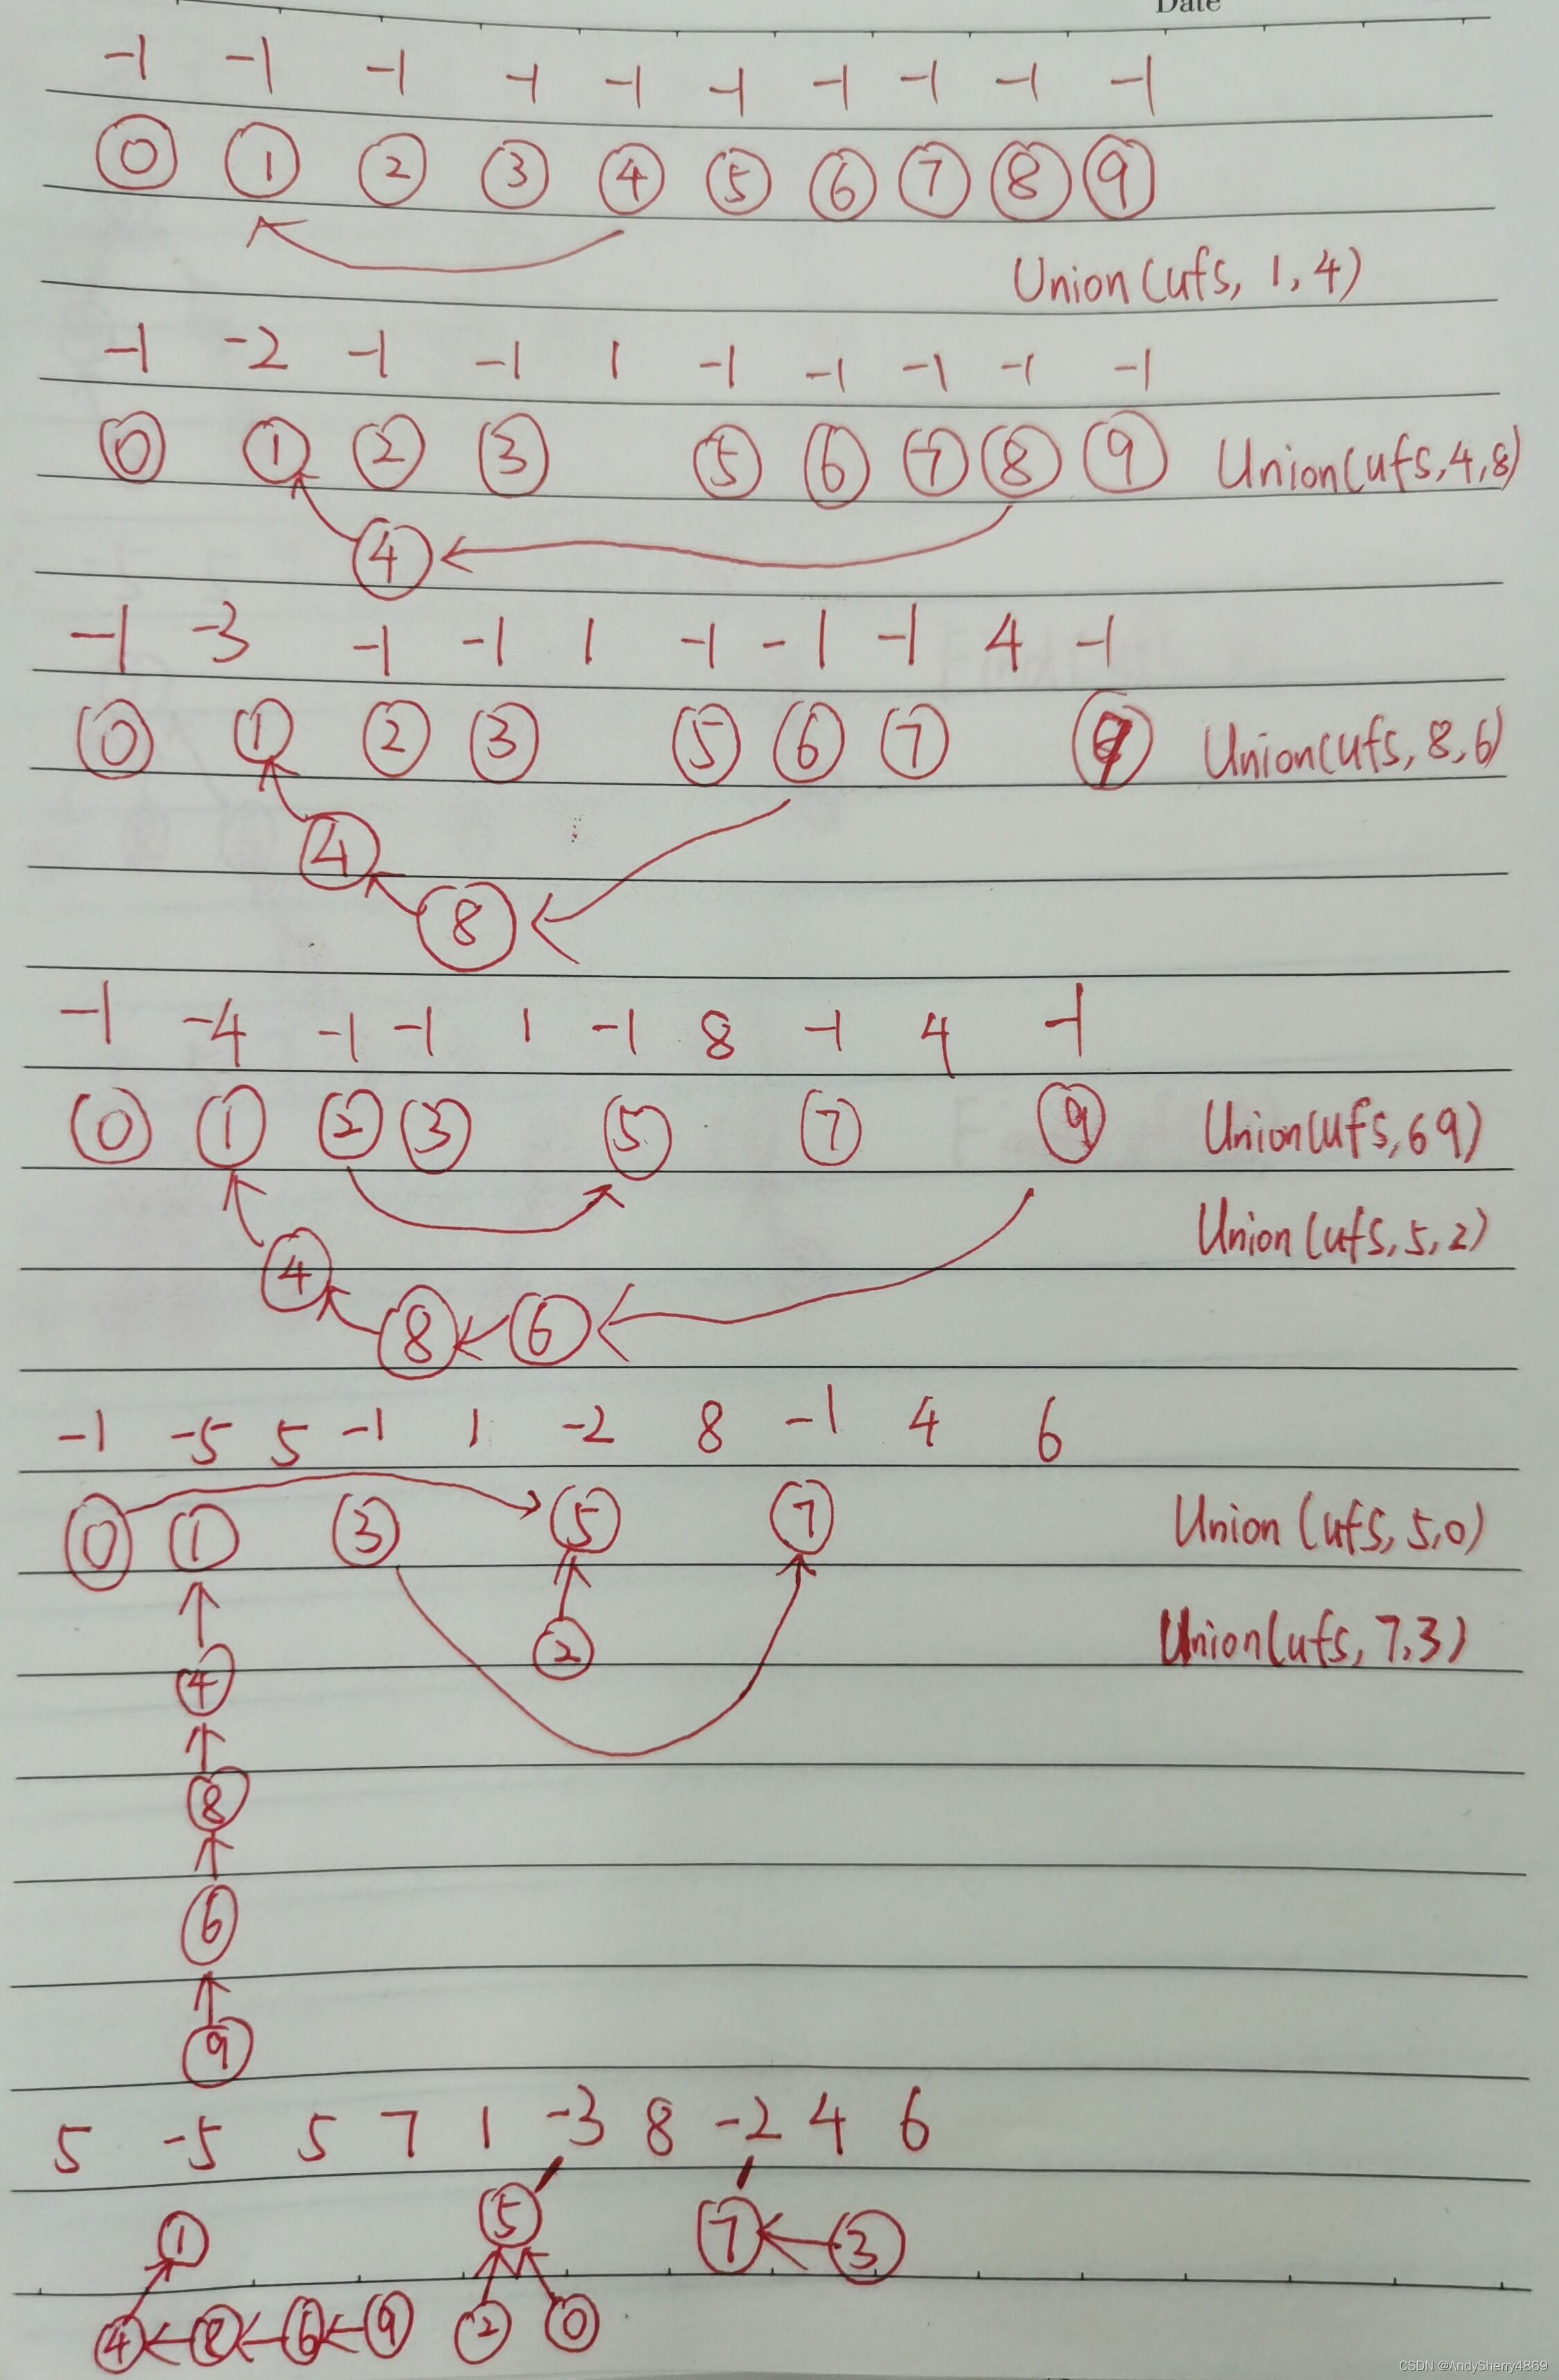 Date
-1 -1 -1 -1 -1 -1 -1 -1 -1 -1
0 1 2 3 4 5 6 7 8 9
Union(ufs, 1,4)
-1 -2 -1 -1 1 -1 -1 -1 -1 -1
0 1 2 3 5 6 7 8 9 Union(ufs,4,8)
4
-1 -3 -1 -1 1 -1 -1 -1 4 -1
0 1 2 3 5 6 7 9 Union(ufs,8,6)
4
8
-1 -4 -1 -1 1 -1 8 -1 4 -1
0 1 2 3 5 7 9 Union(ufs,69)
Union(ufs,5,2)
4
8 6
-1 -5 5 -1 1 -2 8 -1 4 6
0 1 3 5 7 Union (ufs,5,0)
2 Union(ufs,7,3)
4
8
6
9
5 -5 5 7 1 -3 8 -2 4 6
1 5 7 3
4 8 6 9 2 0
CSDN @AndySherry4869